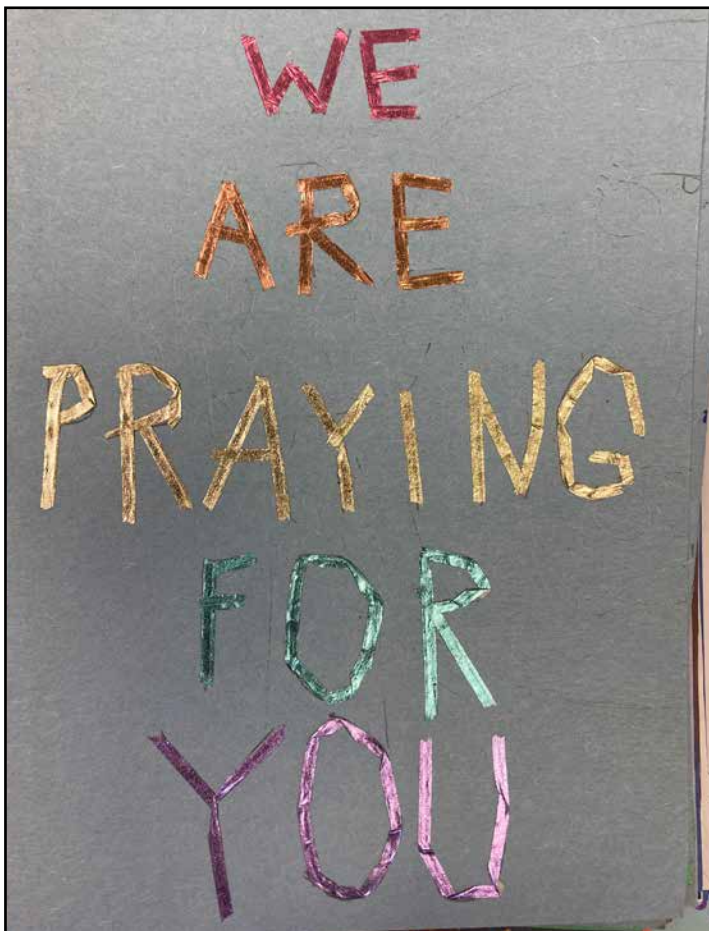 WE
ARE
PRAYING
FOR
YOU